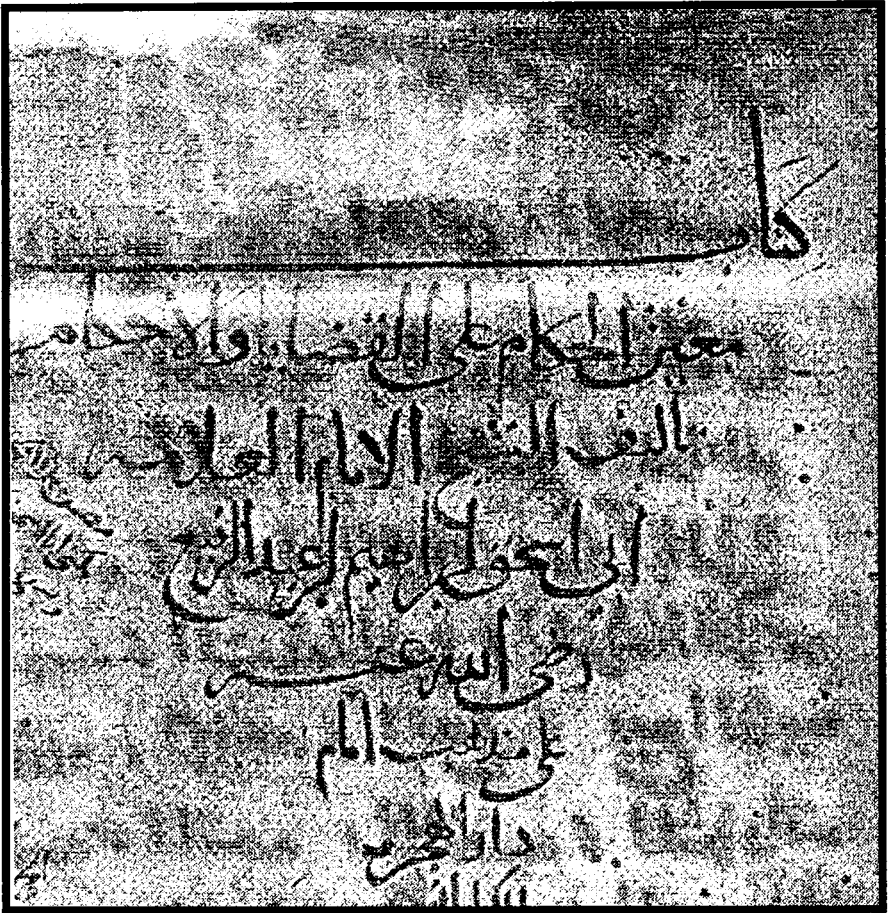 كتاب
معين الحكام على القضايا والاحكام
تاليف الشيخ الامام العلامه
ابى اسحق ابراهيم ابن عبد الرفيع
رضى الله عنه
على مذهب امام
دار الهجره